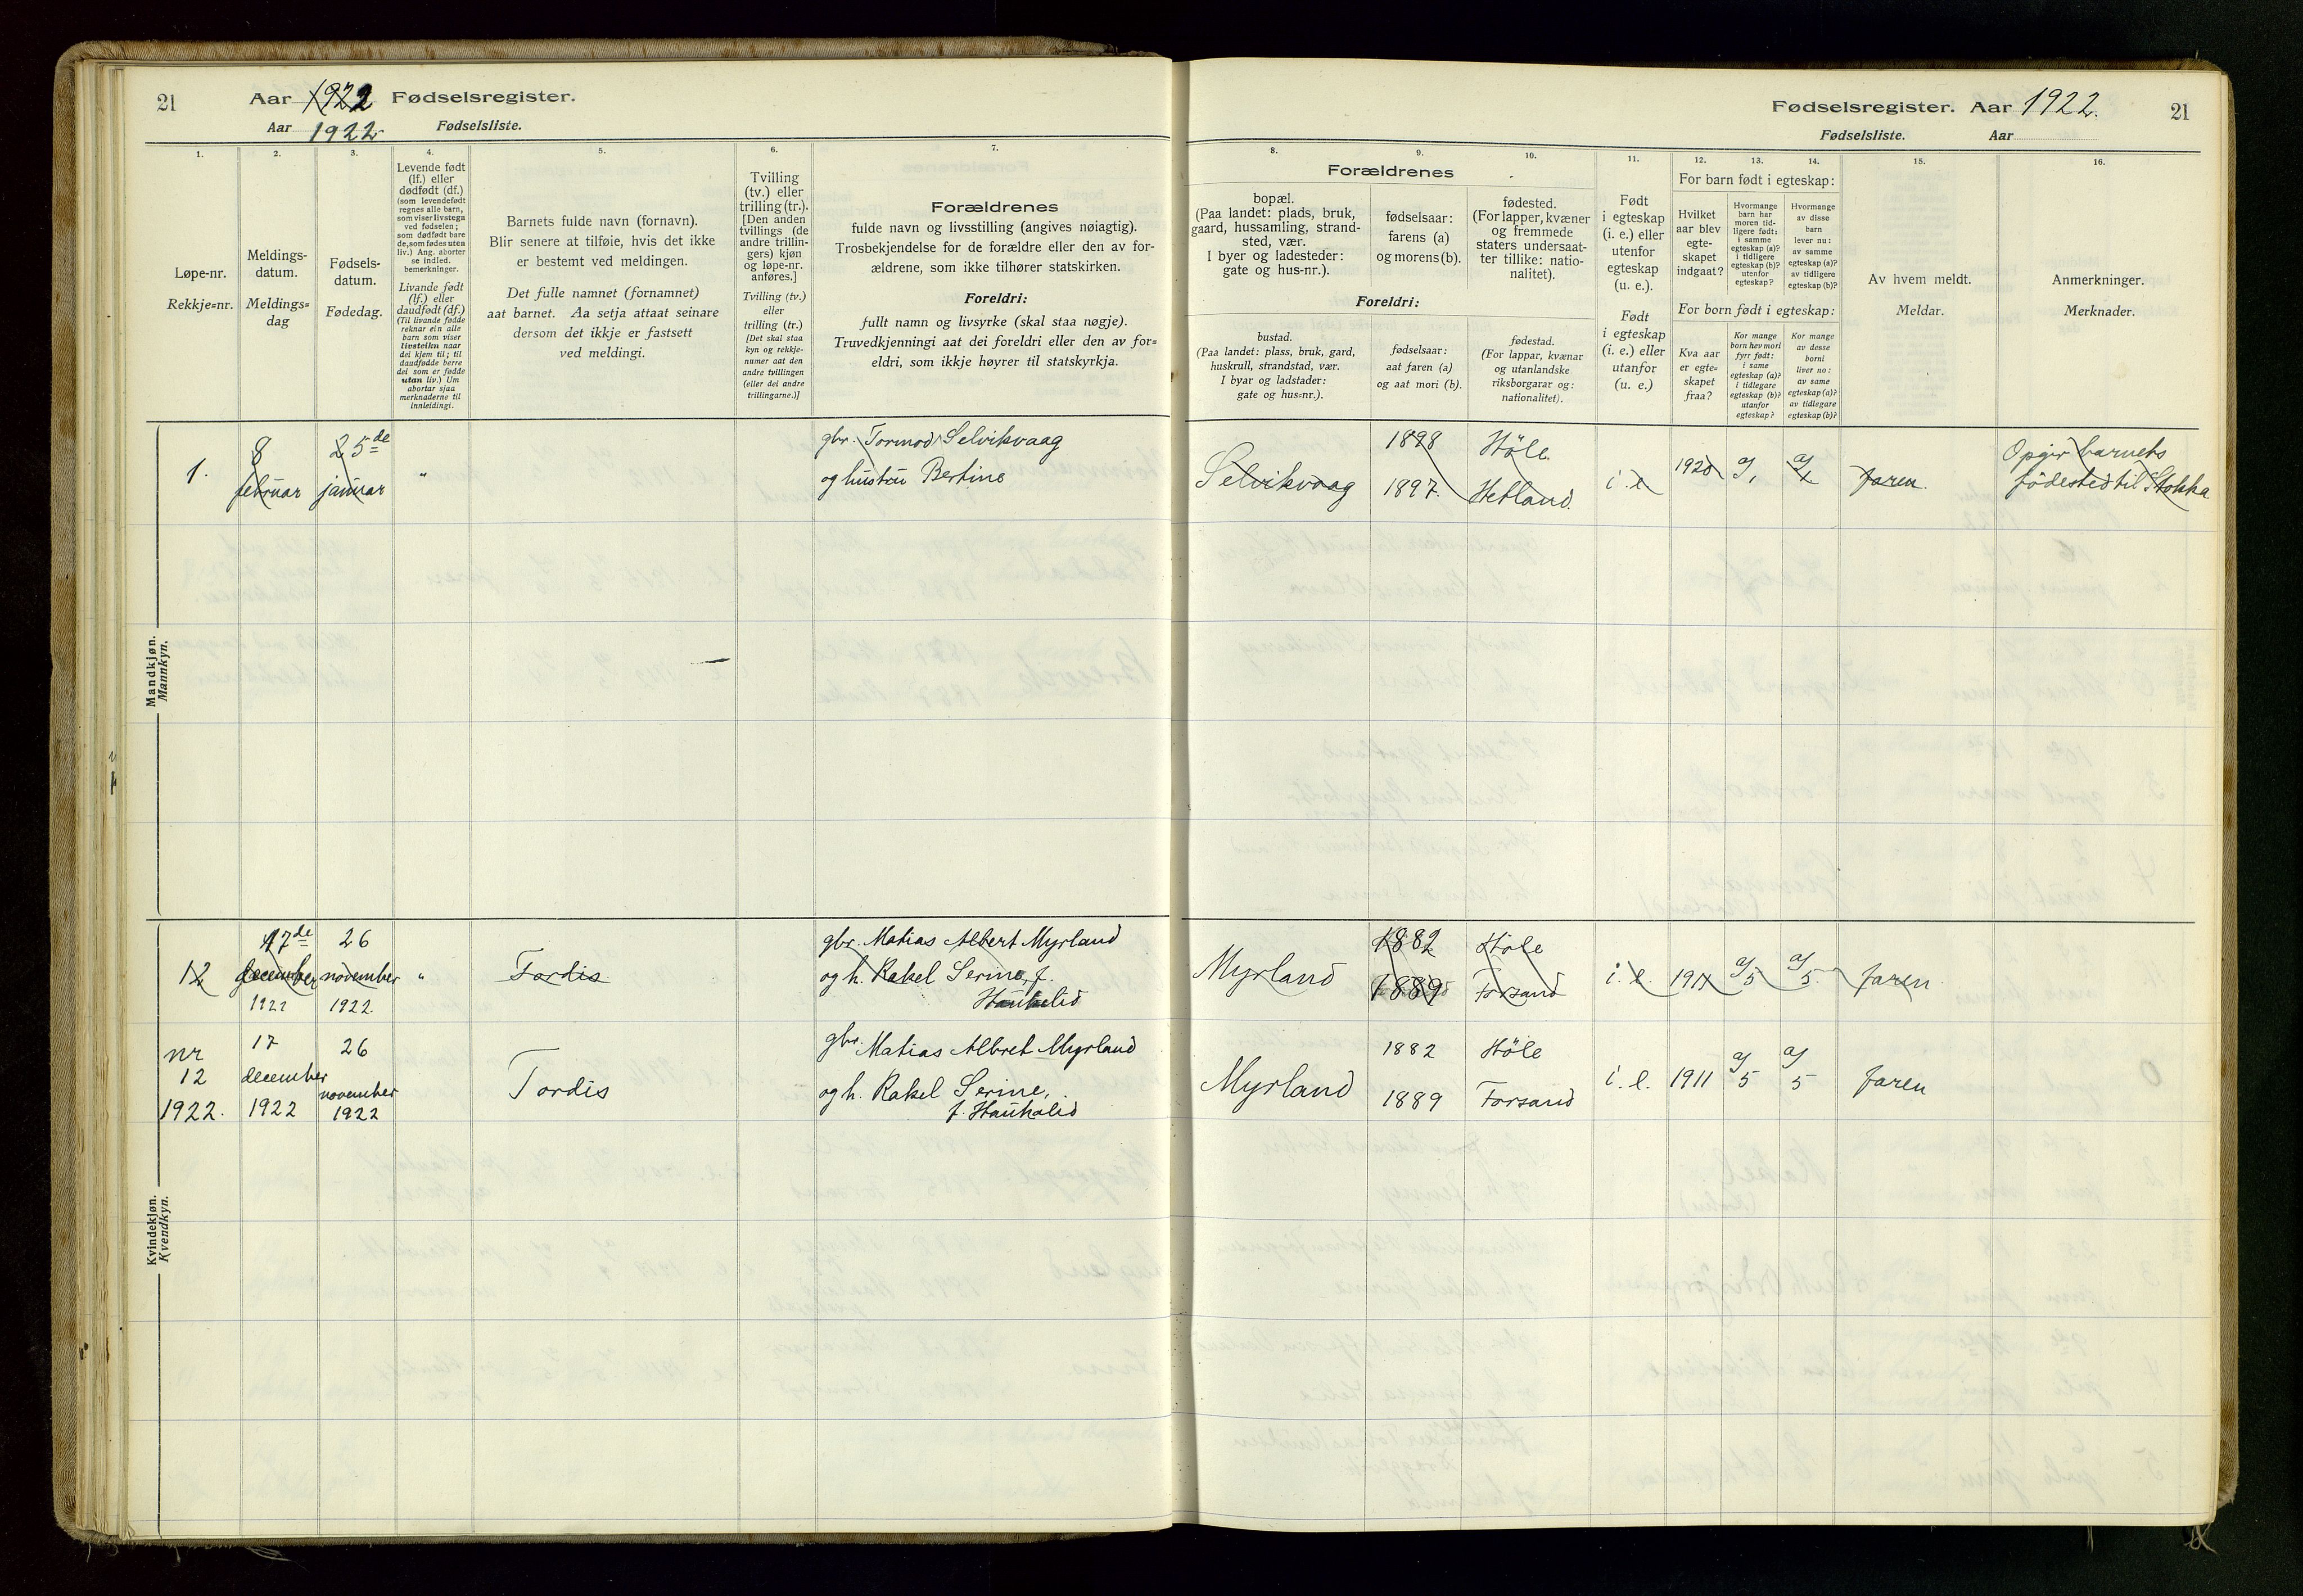 21
Aar 1922 Fødselsregister.
Aar 1922 Fødselsliste.
1.
2.
3.
4.
5.
6.
7.
Løpe-nr.
Rekkje=nr.
Meldings-
datum.
Meldings=
dag
Fødsels-
datum.
Fødedag.
Levende født
(lf.) eller
dødfødt (df.)
(som levendefødt
regnes alle barn,
som viser livstegn
ved fødselen;
som dødfødt bare
de, som fødes uten
liv.) Ang. aborter
se indled.
bemerkninger.
Livande født
(lf.) eller
daudfødt (df.)
(Til livande fødde
reknar ein alle
barn som viser
livsteikn naar
dei kjem til; til
daudfødde berre
dei som er fødde
utan liv.) Um
abortar sjaa
merknaderne til
innleidingi.
Barnets fulde navn (fornavn).
Blir senere at tilføie, hvis det ikke
er bestemt ved meldingen.
Det fulle namnet (fornamnet)
aat barnet. Aa setja attaat seinare
dersom det ikkje er fastsett
ved meldingi.
Tvilling
(tv.) eller
trilling (tr.).
[Den anden
tvillings (de
andre trillin-
gers) kjøn
og løpe-nr.
anføres.]
Tvilling (tv.)
eller
trilling (tr.)
[Det skal staa
kyn og rekkje-
numer aat den
andre tvillingen
(eller dei andre
trillingarne.)]
Forældrenes
fulde navn og livsstilling (angives nøiagtig).
Trosbekjendelse for de forældre eller den av for-
ældrene, som ikke tilhører statskirken.
Foreldri:
fullt namn og livsyrke (skal staa nøgje).
Truvedkjenningi aat dei foreldri eller den av for=
eldri, som ikkje høyrer til statskyrkja.
Mandkjøn.
Mannkyn.
1.
8
februar
25de
januar
"
gbr. Tormod Selvikvaag
og hustru Bertine
Kvindekjøn.
Kvendkyn.
12
17de
december
1922
26
november
1922.
"
Tordis
gbr. Matias Albert Myrland
og h. Rakel Serine, f.
Haukalid
nr
12
1922.
17
december
1922
26
november
1922
Tordis
gbr. Matias Albret Myrland
og h. Rakel Serine,
f. Haukalid
Fødselsregister. Aar 1922.
21
Fødselsliste. Aar
8.
9.
10.
11.
12.
13.
14.
15.
16.
Forældrenes
bopæl.
(Paa landet: plads, bruk,
gaard, hussamling, strand-
sted, vær.
I byer og ladesteder:
gate og hus-nr.).
fødselsaar:
farens (a)
og morens (b).
fødested.
(For lapper, kvæner
og fremmede
staters undersaat-
ter tillike: natio-
nalitet).
Foreldri:
bustad.
(Paa landet: plass, bruk, gard,
huskrull, strandstad, vær.
I byar og ladstader:
gate og hus=nr.).
fødselsaar:
aat faren (a)
og aat mori (b).
fødestad.
(For lappar, kvænar
og utanlandske
riksborgarar og:
nationalitet).
Født
i egteskap
(i. e.) eller
utenfor
egteskap
(u. e.).
Født
i egteskap
(i. e.) eller
utanfor
(u. e.)
For barn født i egteskap:
Hvilket
aar blev
egte-
skapet
indgaat?
Hvormange
barn har
moren tid-
ligere født:
i samme
egteskap (a)?
i tidligere
egteskap (b)?
utenfor
egteskap?
Hvormange
av disse
barn
lever nu:
av samme
egteskap (a)?
av tidligere
egteskap (b)?
For born født i egteskap:
Kva aar
er egte=
skapet
fraa?
Kor mange
born hev mori
fyrr født:
i same
egteskap (a)?
i tidlegare
egteskap (b)?
utanfor
egteskap?
Kor mange
av desse
borni
liver no:
av same
egteskap (a)?
av tidlegare
egteskap (b)?
Av hvem meldt.
Meldar.
Anmerkninger.
Merknader.
Selvikvaag
1898
1897.
Höle
Hetland.
i. e
1920
a/1
a/1
faren.
Opgir barnets
födested til Stokka
Myrland
1882
1889
Höle
Forsand
i. e.
1911
a/5
a/5
faren
Myrland
1882
1889
Höle
Forsand
i. e.
1911
a/5
a/5
faren